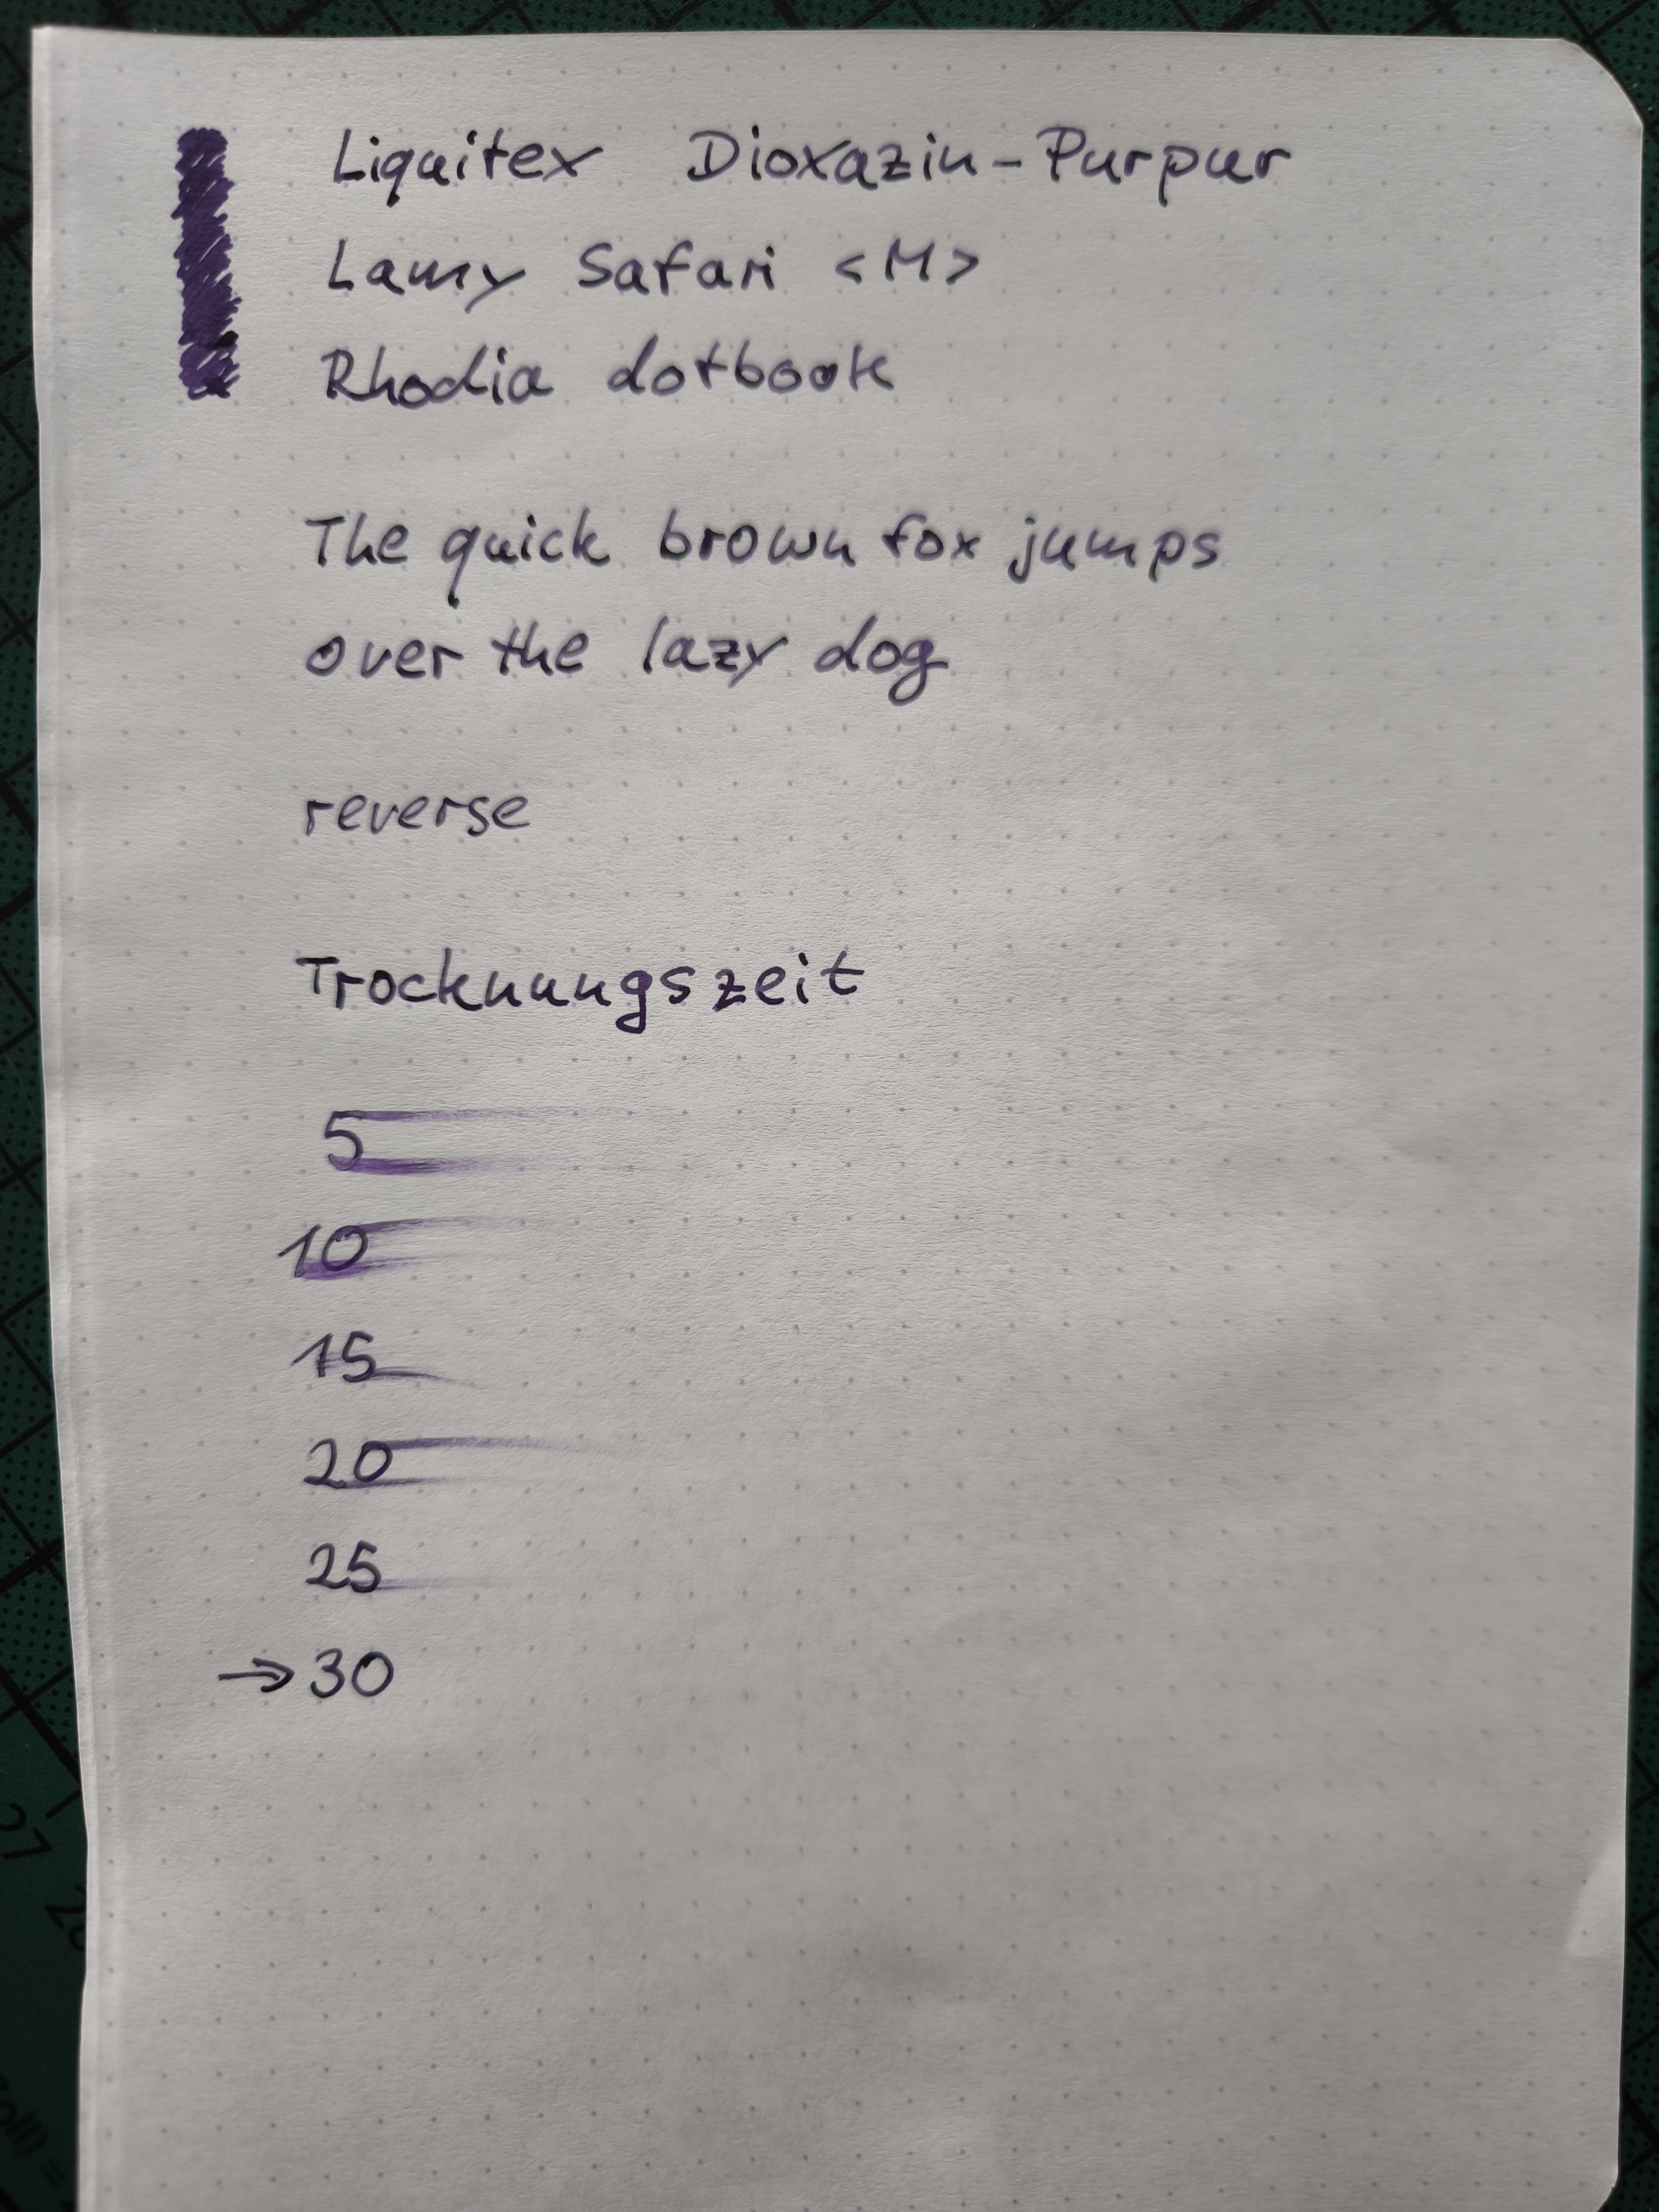 Liquitex Dioxazin-Purpur
Lamy Safari <M>
Rhodia dotbook
The quick brown fox jumps
over the lazy dog
reverse
Trocknungszeit
5
10
15
20
25
→30
27